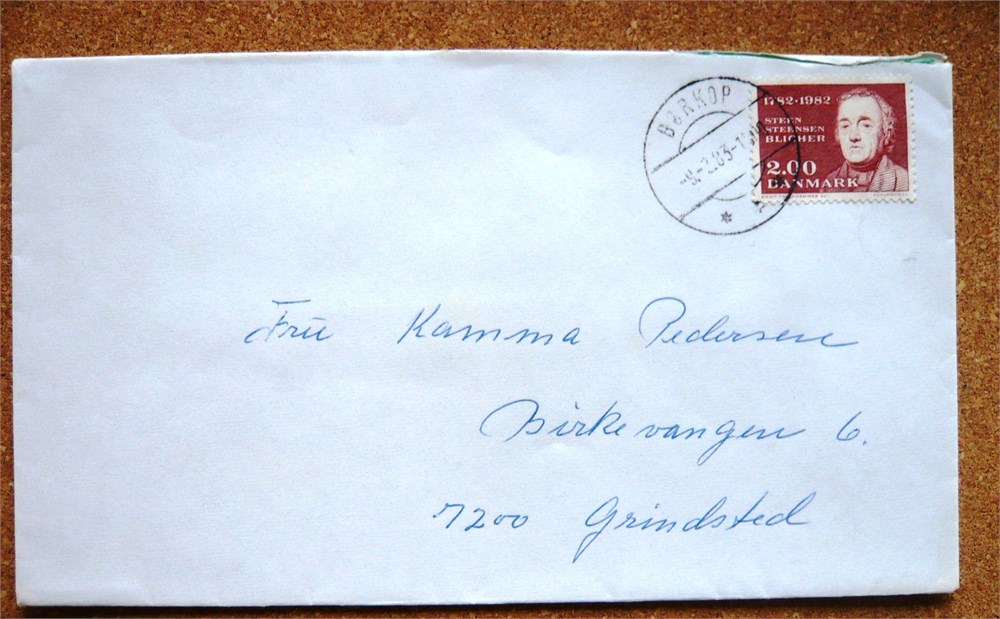 BØRKOP
1782·1982
STEEN
STEENSEN
BLICHER
2.00
DANMARK
Fru Kamma Pedersen
Birkevangen 6.
7200 Grindsted